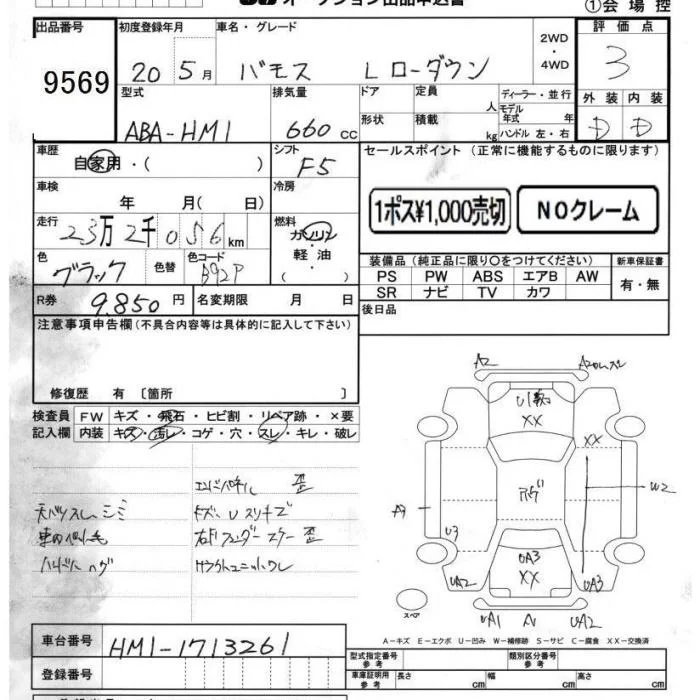 オークション出品申込書
①会場控
出品番号
9569
初度登録年月
20 5月
車名・グレード
バモス Lローダウン
2WD
・
4WD
評価点
3
外装 内装
D D
型式
ABA-HM1
排気量
660 cc
ドア
形状
定員
人
積載
kg
ディーラー・並行
モデル
年式 年
ハンドル 左・右
車歴
自家用・( )
シフト
F5
セールスポイント (正常に機能するものに限ります)
1ポス¥1,000売切
NOクレーム
車検
年 月( 日)
冷房
走行
23万2千056km
燃料
ガソリン
軽油
( )
色
ブラック
色替
色コード
B92P
装備品(純正品に限り○をつけてください)
新車保証書
有・無
PS PW ABS エアB AW
SR ナビ TV カワ
R券
9.850円
名変期限 月 日
後日品
注意事項申告欄(不具合内容等は具体的に記入して下さい)
修復歴 有〔箇所 〕
検査員
記入欄
FW キズ・飛石・ヒビ割・リペア跡・×要
内装 キズ・汚レ・コゲ・穴・スレ・キレ・破レ
天バリスレ シミ
キズ・U
右F フェンダー
歪
A2
A2
XX
XX
W2
U3
UA2
UA3
XX
UA3
UA1
UA2
スペア
A-キズ E-エクボ U-凹み W-補修跡 S-サビ C-腐食 XX-交換済
車台番号
HM1-1713261
登録番号
型式指定番号
参考
類別区分番号
参考
車庫証明用
参考
長さ cm
幅 cm
高さ cm